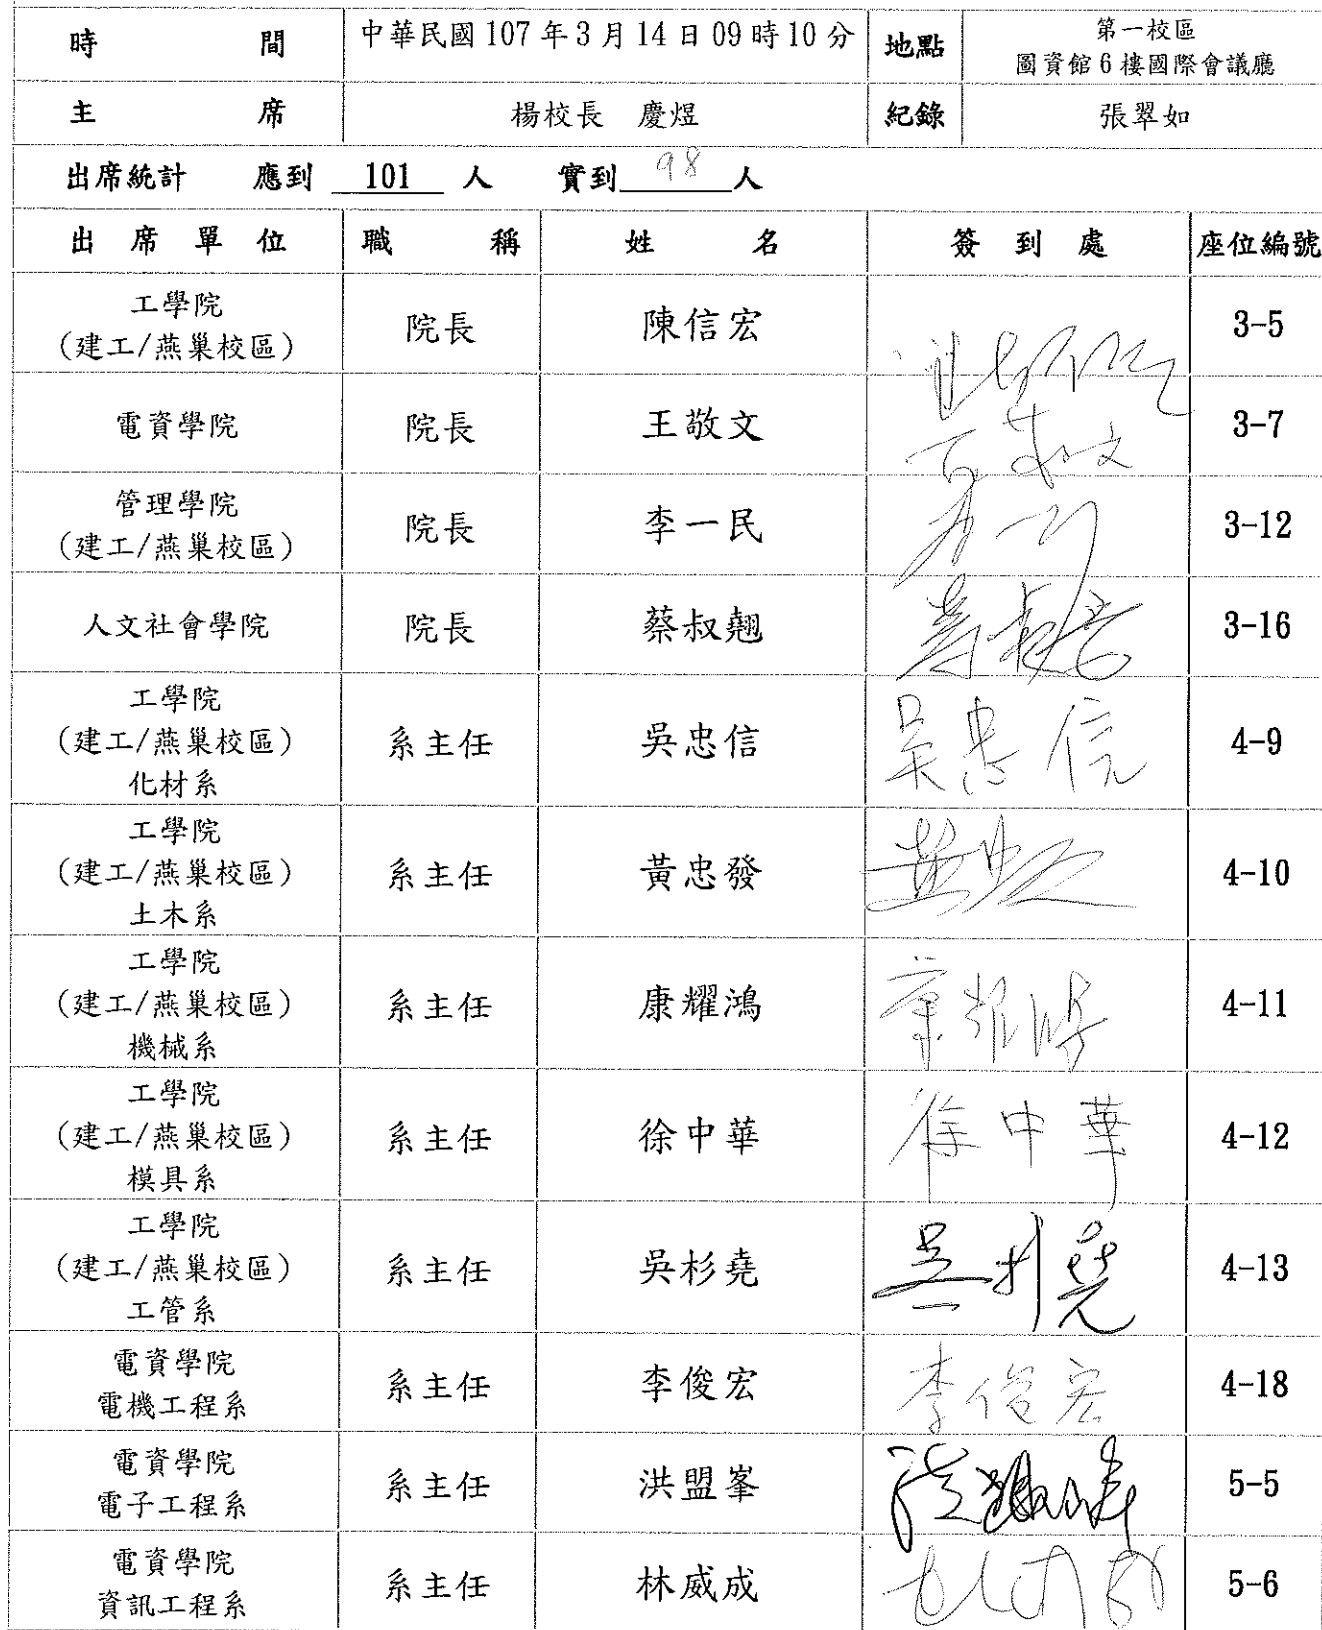 時間 中華民國 107 年 3 月 14 日 09 時 10 分 地點 第一校區
圖資館 6 樓國際會議廳
主席 楊校長 慶煜 紀錄 張翠如
出席統計 應到 101 人 實到 98 人
出席單位 職稱 姓名 簽到處 座位編號
工學院
(建工/燕巢校區) 院長 陳信宏 3-5
電資學院 院長 王敬文 3-7
管理學院
(建工/燕巢校區) 院長 李一民 3-12
人文社會學院 院長 蔡叔翹 3-16
工學院
(建工/燕巢校區) 系主任 吳忠信 吳忠信 4-9
化材系
工學院
(建工/燕巢校區) 系主任 黃忠發 4-10
土木系
工學院
(建工/燕巢校區) 系主任 康耀鴻 4-11
機械系
工學院
(建工/燕巢校區) 系主任 徐中華 徐中華 4-12
模具系
工學院
(建工/燕巢校區) 系主任 吳杉堯 吳杉堯 4-13
工管系
電資學院
電機工程系 系主任 李俊宏 李俊宏 4-18
電資學院
電子工程系 系主任 洪盟峯 5-5
電資學院
資訊工程系 系主任 林威成 5-6